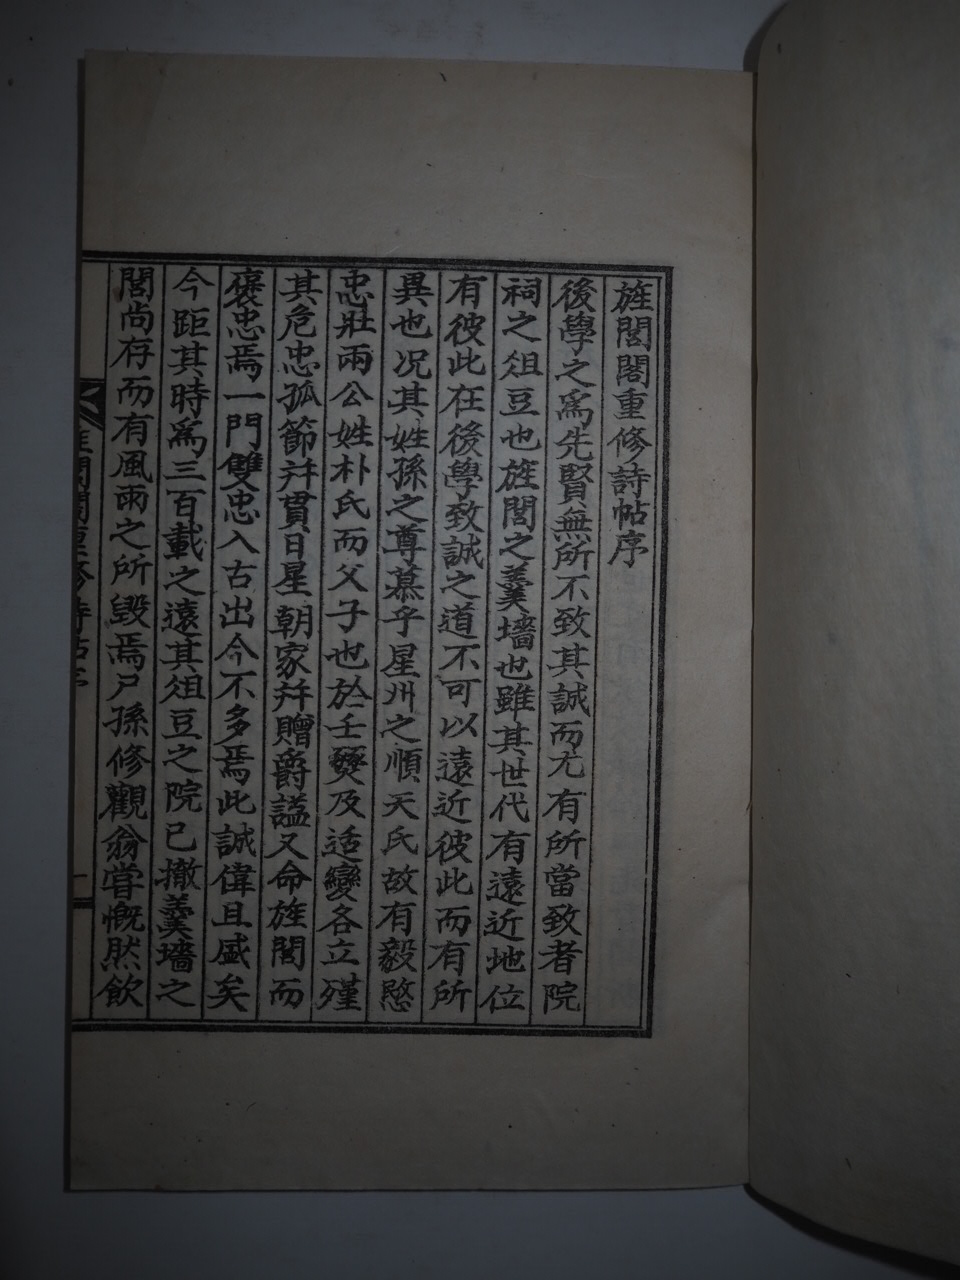 旌閭閣重修詩帖序
後學之爲先賢無所不致其誠而尤有所當致者院
祠之俎豆也旌閭之羹墻也雖其世代有遠近地位
有彼此在後學致誠之道不可以遠近彼此而有所
異也况其姓孫之尊慕乎星州之順天氏故有毅愍
忠壯兩公姓朴氏而父子也於壬燹及适變各立殣
其危忠孤節幷貫日星朝家幷贈爵謚又命旌閭而
褒忠焉一門雙忠入古出今不多焉此誠偉且盛矣
今距其時爲三百載之遠其俎豆之院已撤羹墻之
閭尚存而有風雨之所毀焉尸孫修觀翁嘗慨然飮